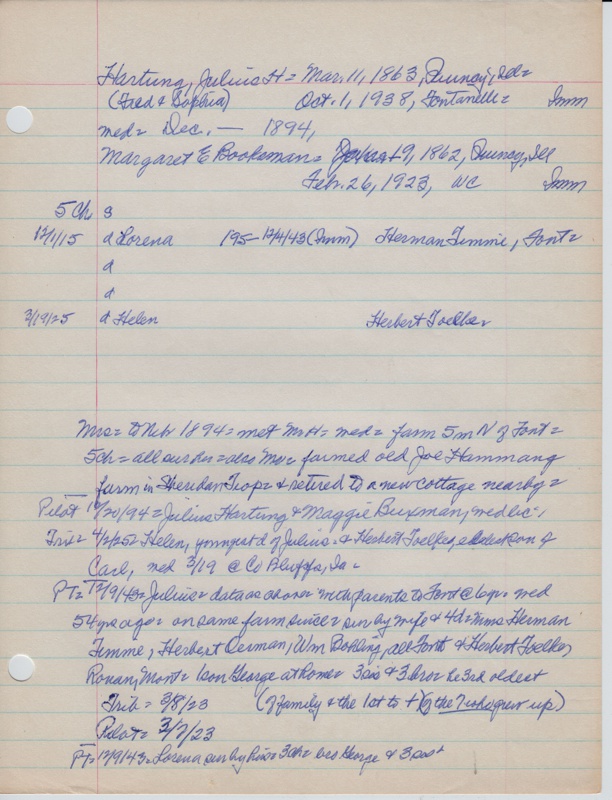 Hartung, Julius H = Mar. 11, 1863, Quincy, Ill =
(Fred & Sophia) Oct. 1, 1938, Fontanelle = Imm
med = Dec. — 1894,
Margaret E Bookeman = 19, 1862, Quincy, Ill
Feb. 26, 1923, WC Imm
5 Ch s
12/1/15 d Lorena 195- 12/4/43 (Imm) Herman Temme, Font =
d
d
3/19/25 d Helen Herbert Toelker
Mrs = to Nebr 1894 = met Mr H = med = farm 5 m N of Font =
5 ch = all sur des = also Mr = farmed old Joe Hammang
farm in Sheridan Twp = & retired to a new cottage nearby =
Pilot 12/20/94 = Julius Hartung & Maggie Buxman, med Dec
Trib = 4/2/25 = Helen, young d of Julius & Herbert Toelker, eldest son of
Carl, med 3/19 @ Co Bluffs, Ia =
PT = 12/9/43 = Julius = data as above with parents to Font @ 6 yr = med
54 yrs ago = on same farm since = sur by wife & 4 d = Mmes Herman
Temme, Herbert Oerman, Wm Bolling, all Font & Herbert Toelker
Ronan, Mont = 1 son George at home = 3 sis & 3 bros he 3rd oldest
Trib = 3/8/23 (of family & the 1st to + (of the 7 who grew up)
Pilot = 3/7/23
PT = 12/9/43 = Lorena sur by hus = 3 ch = bro George & 3 sis +